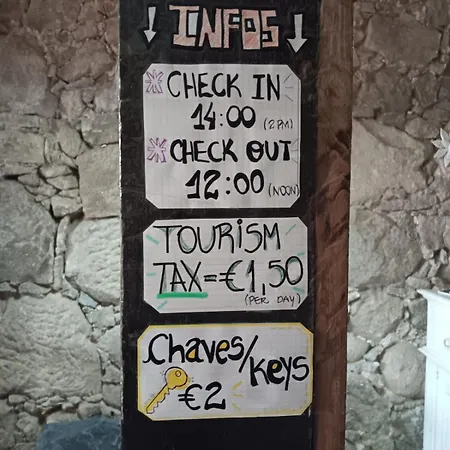 INFOS
CHECK IN
14:00 (2PM)
CHECK OUT
12:00 (NOON)
TOURISM
TAX=€1,50
(PER DAY)
Chaves/
Keys
€2